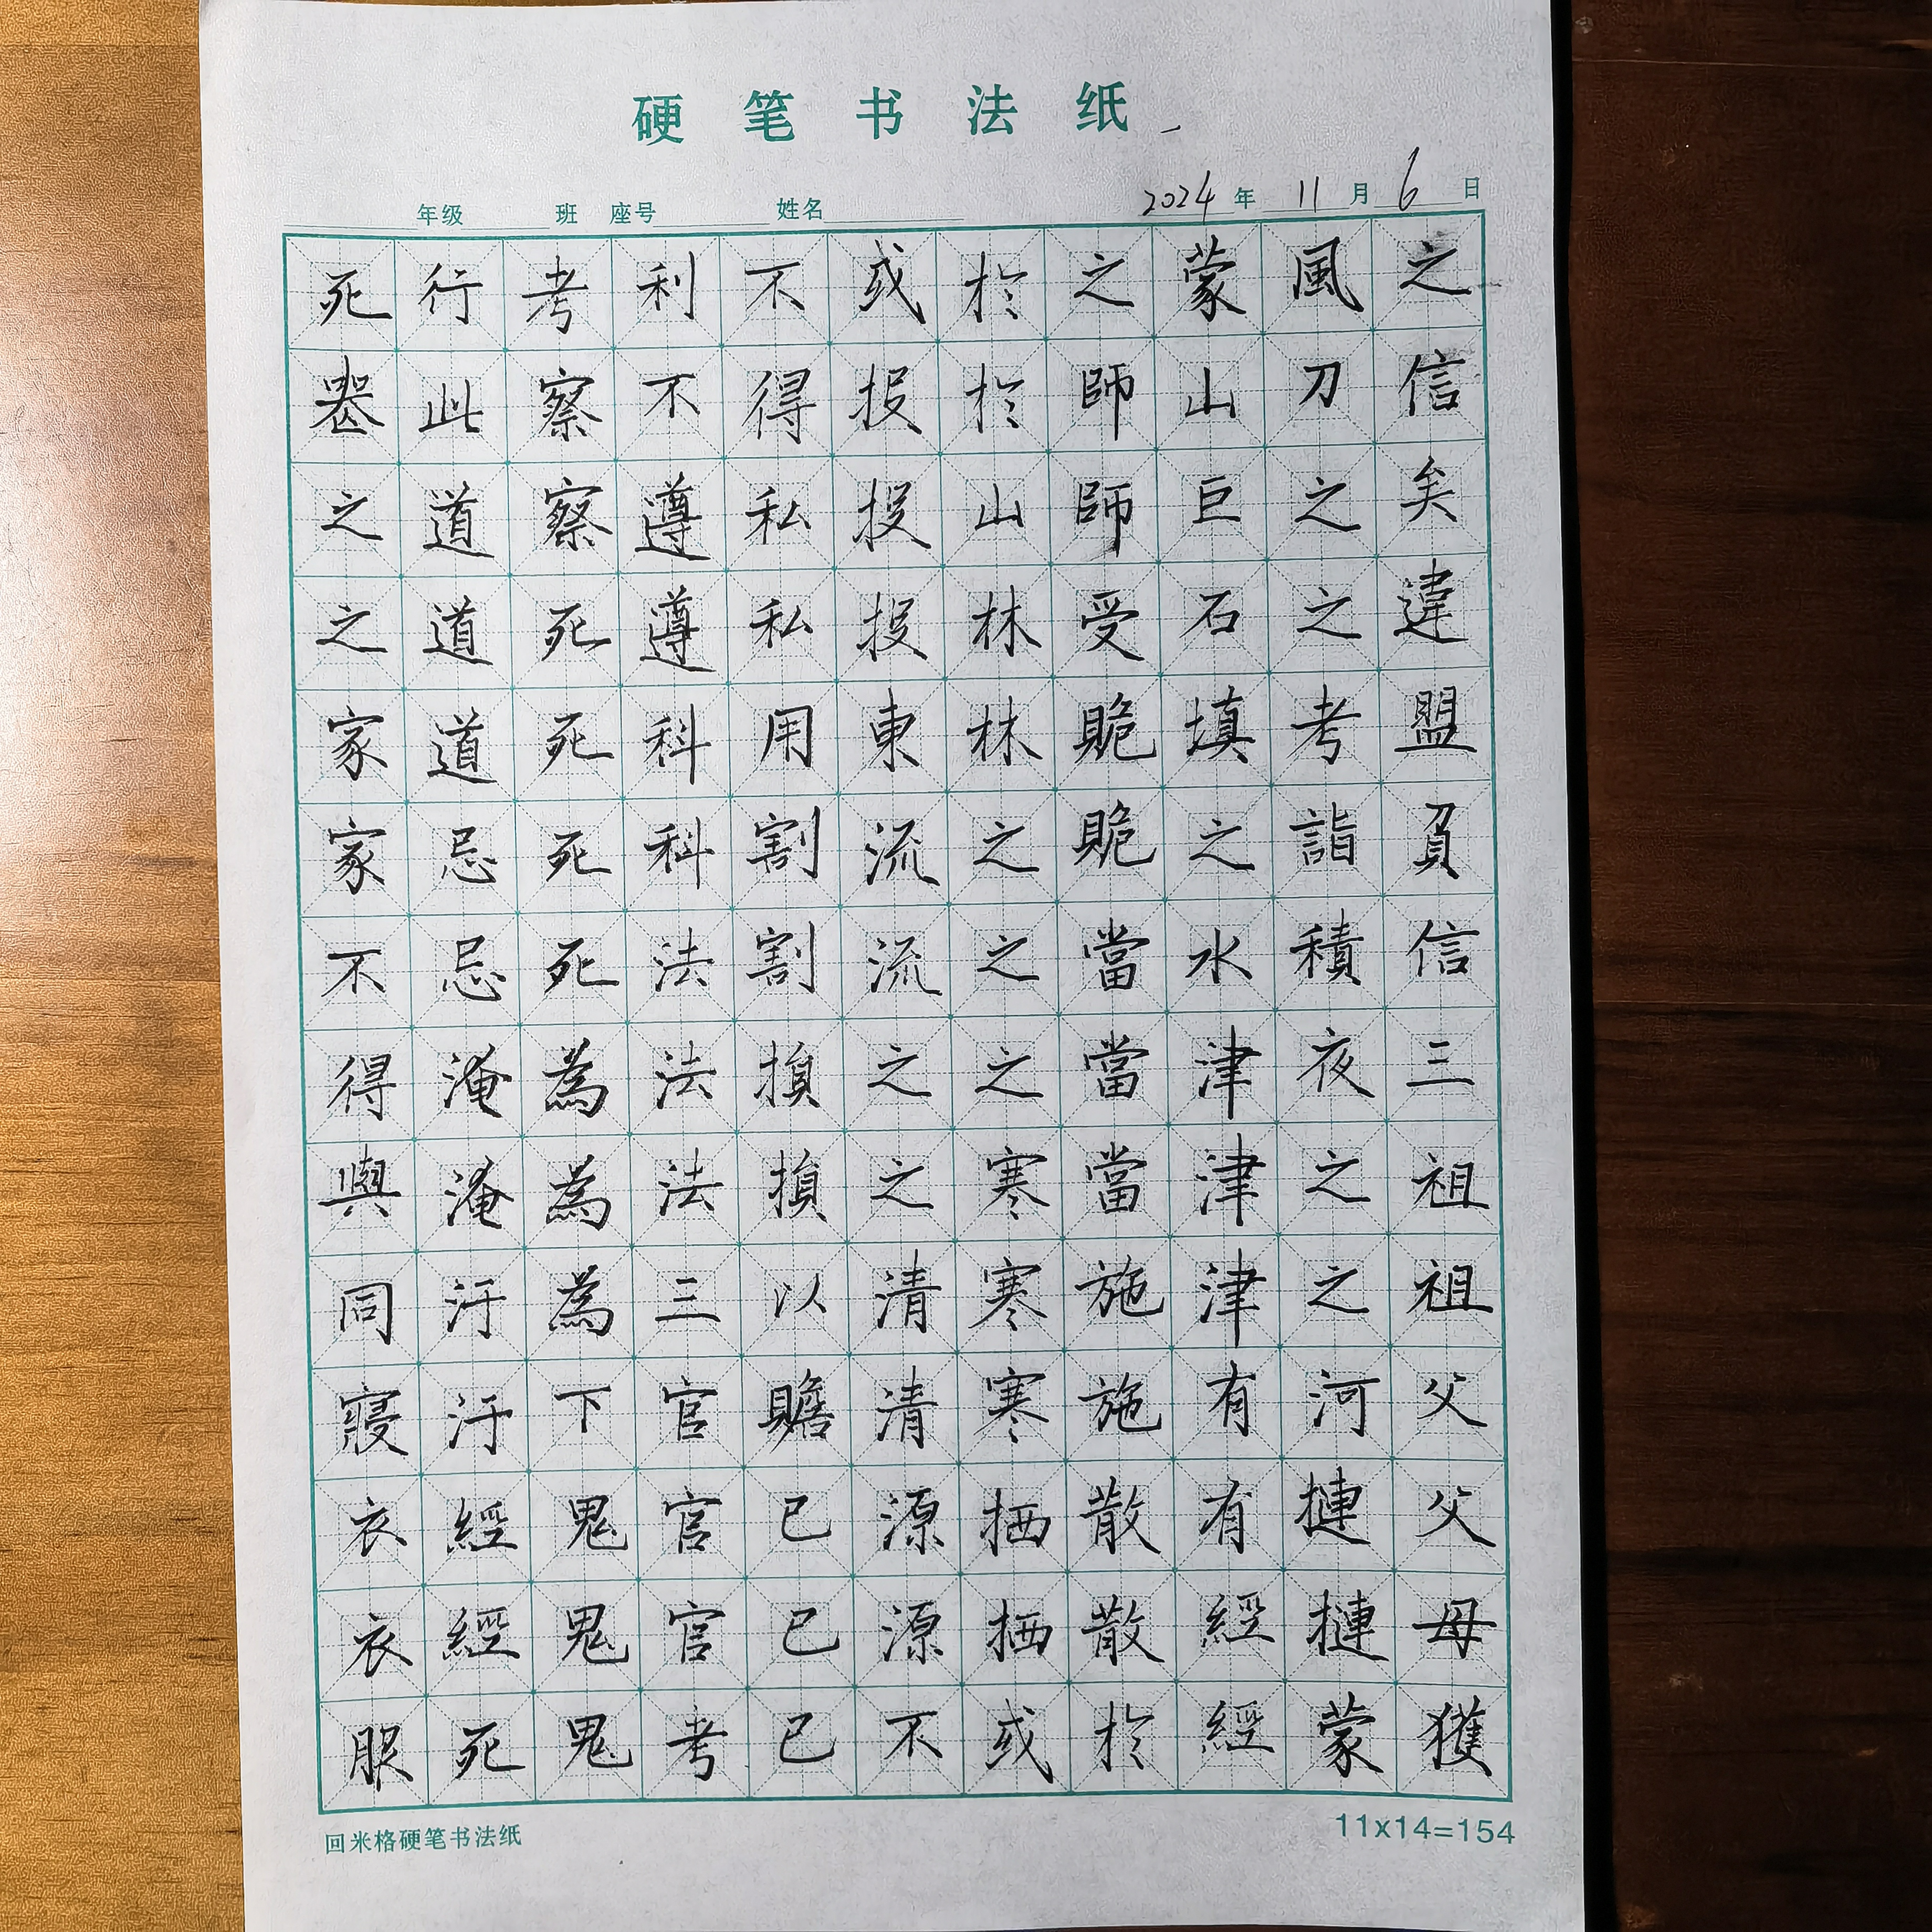 硬笔书法纸
年级 班 座号 姓名 2024年11月6日
之信矣違盟負信三祖祖父父母獲
風刀之之考詣積夜之之河摙摙蒙
蒙山巨石填之水津津津有有經經
之師師受䝿䝿當當當施施散散於
於於山林林之之之寒寒寒栖栖或
或投投投東流流之之清清源源不
不得私私用割割損損以贍已已已
利不遵遵科科法法法三官官官考
考察察死死死死為為為下鬼鬼鬼
行此道道道忌忌淹淹汙汙經經死
死喪之之家家不得與同寢衣衣服
回米格硬笔书法纸
11x14=154